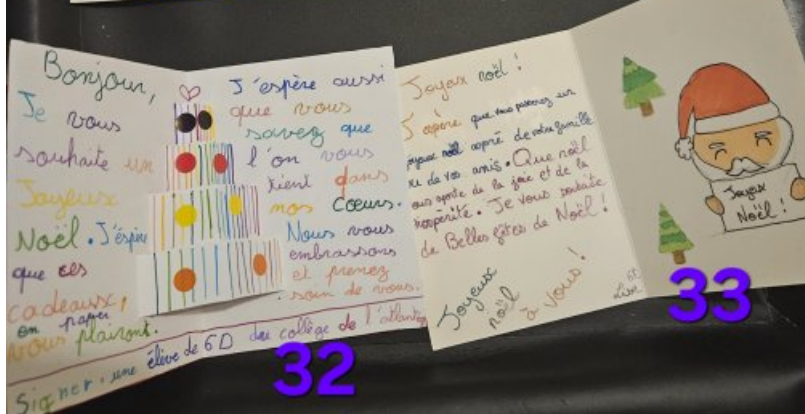 Bonjour,
Je vous
souhaite un
Joyeux
Noël. J'éspère
que ces
cadeaux,
en papier
vous plairont.
J'éspère aussi
que vous
savez que
l'on vous
tient dans
nos coeurs.
Nous vous
embrassons
et prenez
soin de vous.
Signer : une élève de 6D du collège de l'atlantique
32
Joyeux noël !
J'espère que vous passerez un
joyeux noël auprè de votre famille
ou de vos amis. Que noël
vous aporte de la joie et de la
prospérité. Je vous souhaite
de Belles fêtes de Noël !
Joyeux
noël
à vous !
Joyeux
Noël !
33